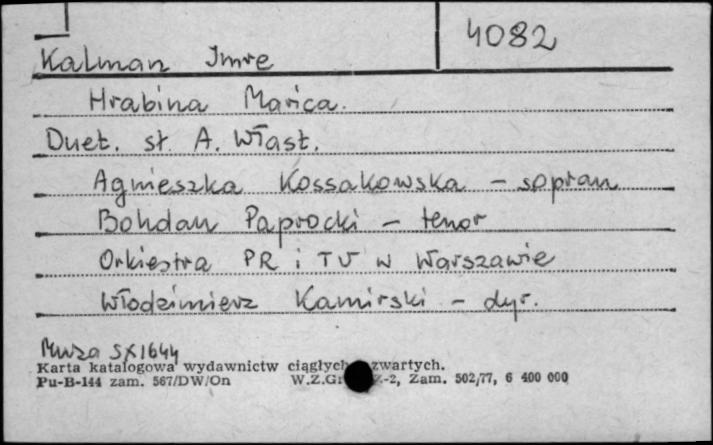 4082
Kalman Imre
Hrabina Marica.
Duet. sł. A. Włast.
Agnieszka Kossakowska - sopran
Bohdan Paprocki - tenor
Orkiestra PR i TV w Warszawie
Włodzimierz Kamirski - dyr.
Muza SX1644
Karta katalogowa wydawnictw ciągłych zwartych.
Pu-B-144 zam. 567/DW/On W.Z.Gr Z-2, Zam. 502/77, 6 400 000